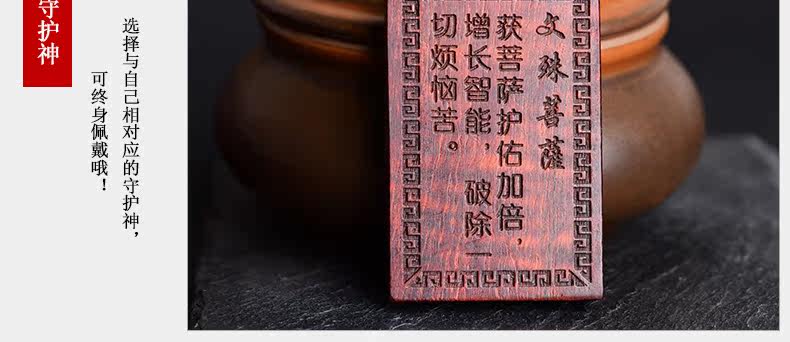 守护神
选择与自己相对应的守护神，
可终身佩戴哦！
文殊菩萨
获菩萨护佑加倍，
增长智能，破除一
切烦恼苦。